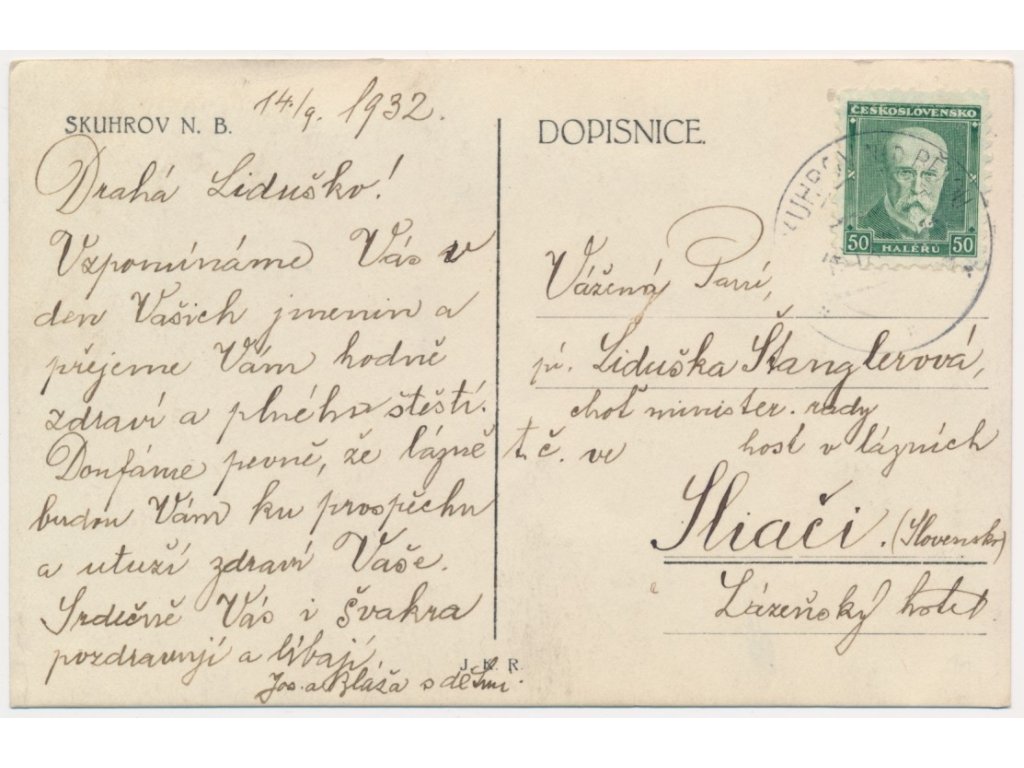 SKUHROV N. B.
14./9. 1932.
Drahá Liduško!
Vzpomínáme Vás v
den Vašich jmenin a
přejeme Vám hodně
zdraví a plného štěstí.
Doufáme pevně, že lázně
budou Vám ku prospěchu
a utuží zdraví Vaše.
Srdečně Vás i švakra
pozdravují a líbají
Jos. a Bláža s dětmi.
J. K. R.
DOPISNICE.
ČESKOSLOVENSKO
50 HALÉŘŮ 50
Vážená Paní,
pí. Liduška Štanglerová,
choť minister. rady
t. č. ve host v lázních
Sliači. (Slovensko)
Lázeňský hotel